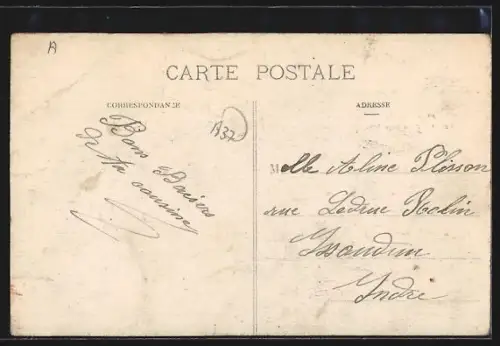 A
CARTE POSTALE
CORRESPONDANCE
Bons Baisers
de ta cousine
A37
ADRESSE
Melle Aline Plisson
rue Ledru Rollin
Issoudun
Indre